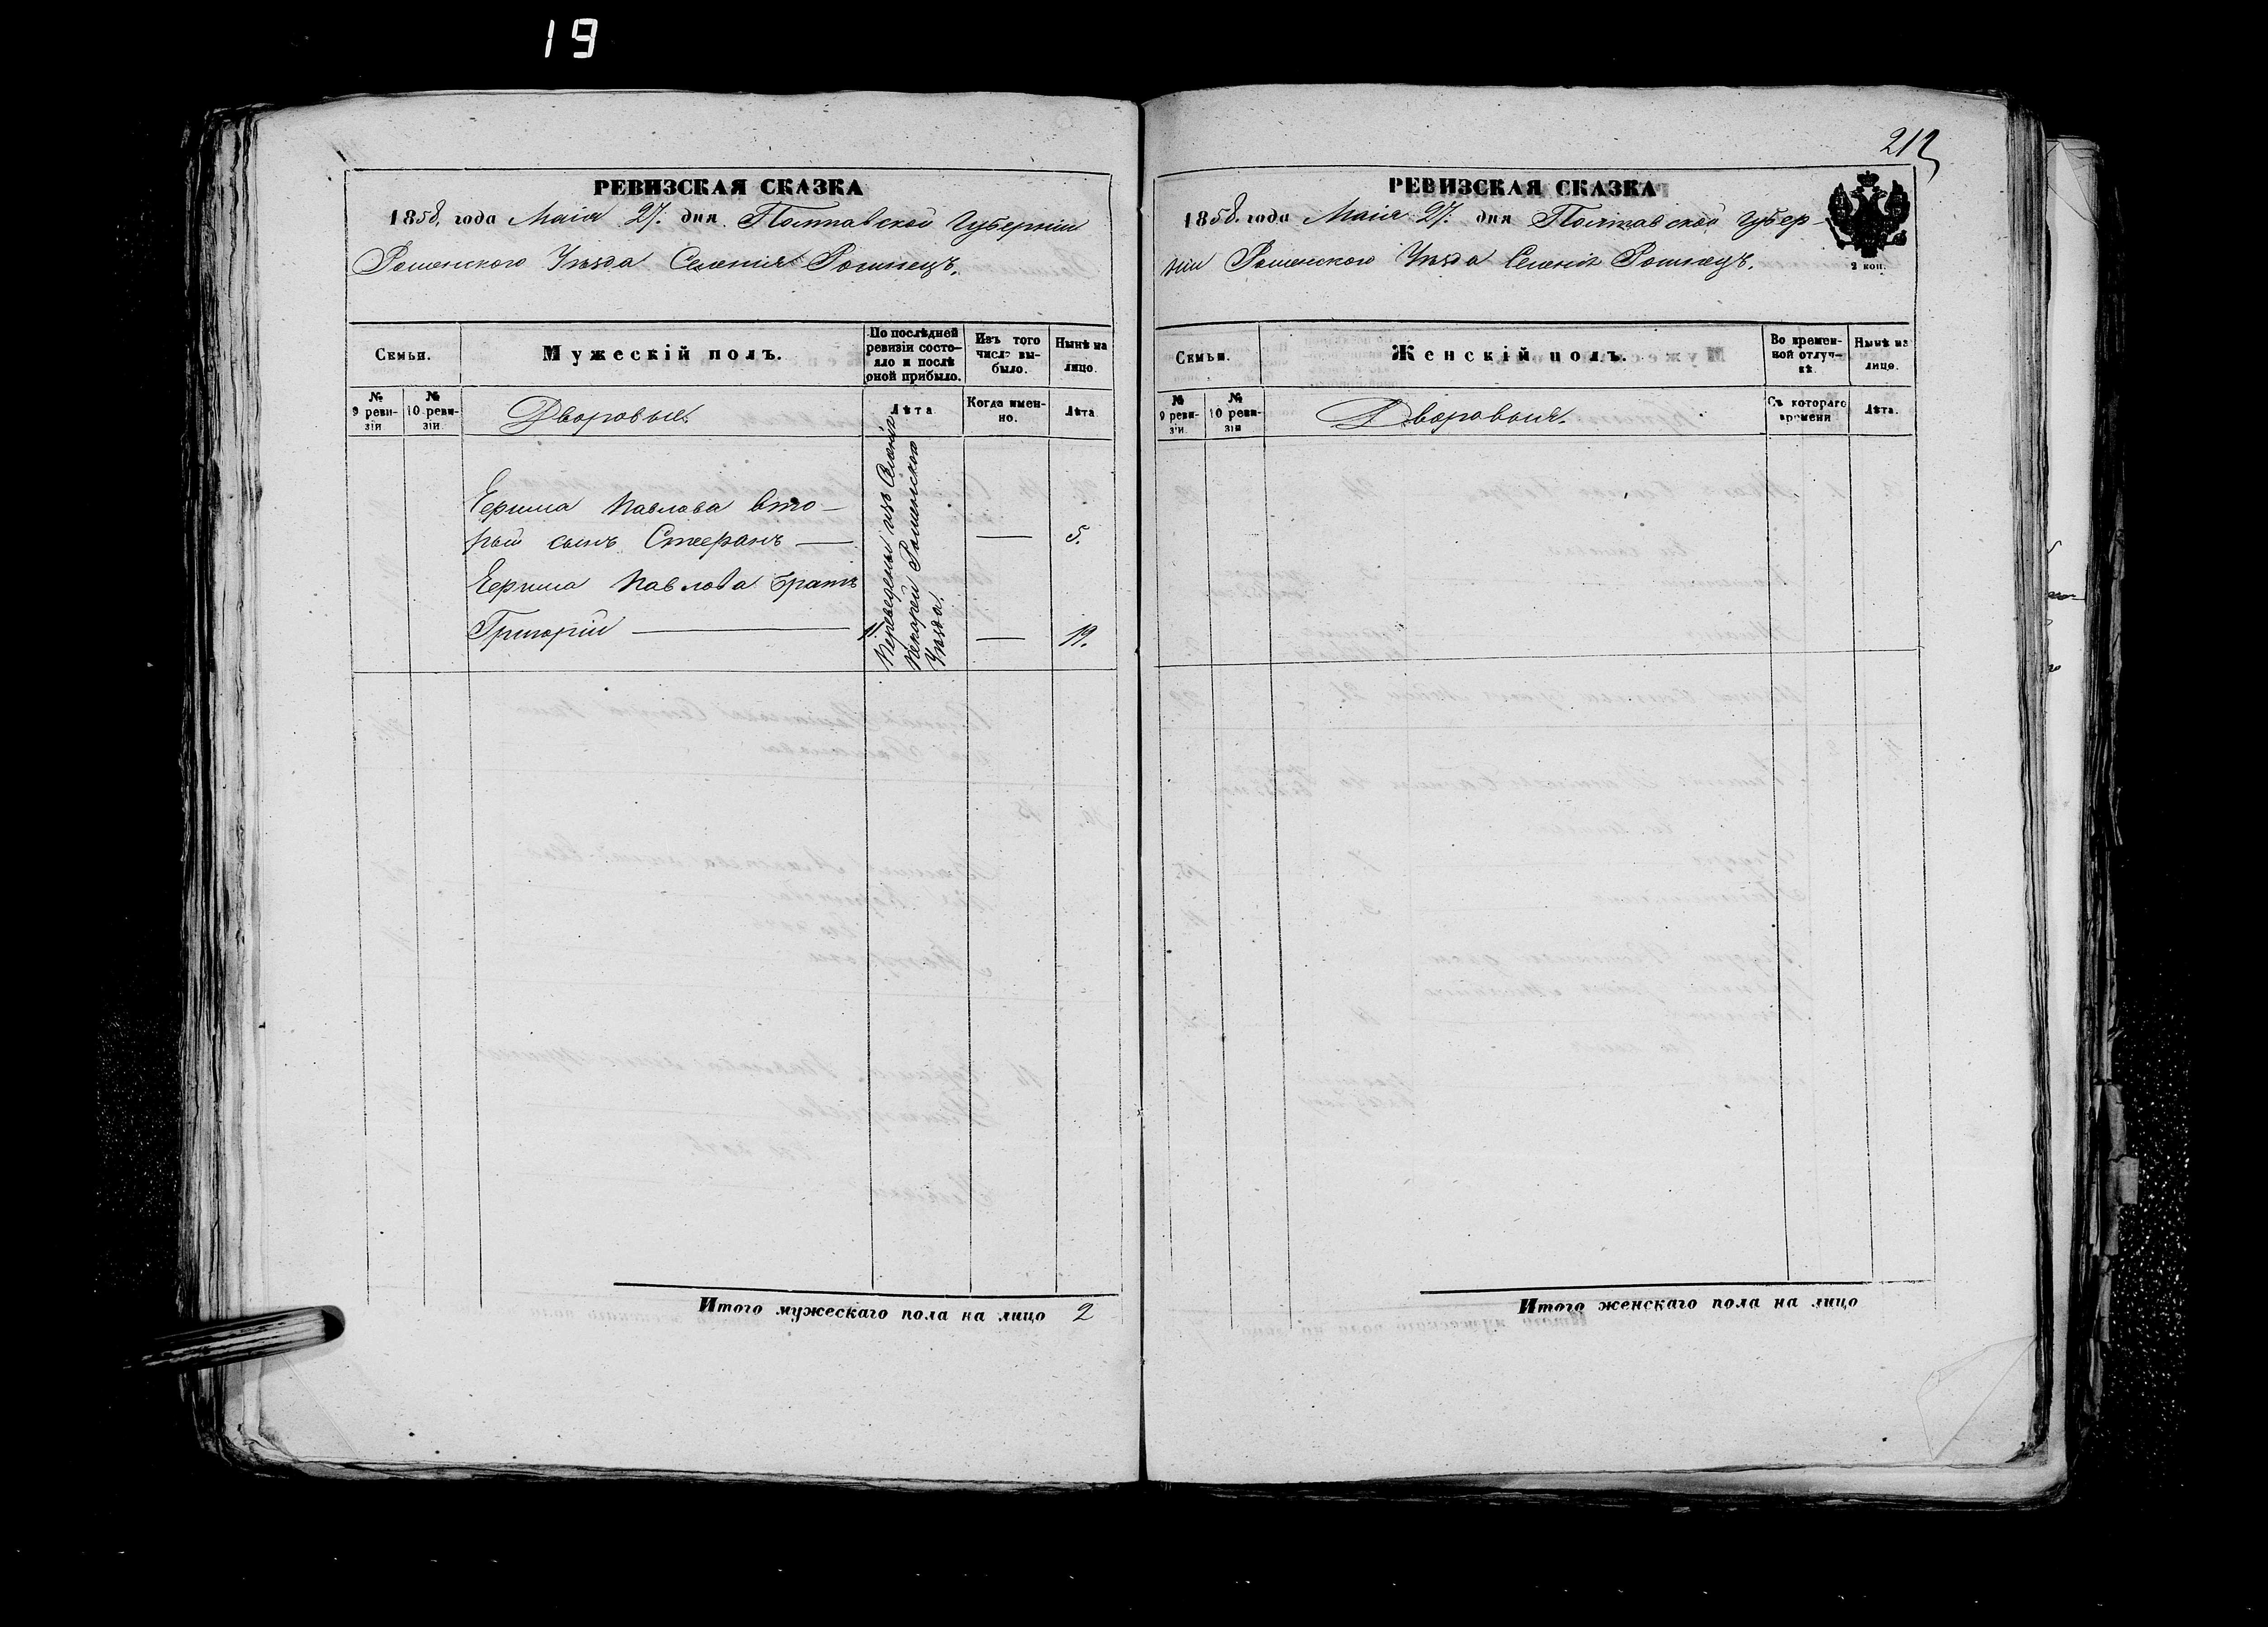 19
РЕВИЗСКАЯ СКАЗКА
1858. года Маія 27. дня Полтавской Губерніи
Роменского Уѣзда Селенія
Семьи.
Мужескій полъ.
По послѣдней ревизіи состояло и послѣ оной прибыло.
Изъ того числа выбыло.
Нынѣ на лицо.
№ 9 ревизіи
№ 10 ревизіи.
Дворовые.
Лѣта
Когда именно.
Лѣта
Переведены изъ Селенія
Роменского
Уѣзда.
Павлова вто-
рый сынъ Стефанъ — — 5.
Павлова братъ
Григорій — 11 — 19.
Итого мужескаго пола на лицо 2
212
РЕВИЗСКАЯ СКАЗКА
1858. года Маія 27. дня Полтавской Губер-
ніи Роменского Уѣзда Селенія
2 коп.
Семьи.
Женскій полъ.
Во временной отлучкѣ.
Нынѣ на лицо.
№ 9 ревизіи.
№ 10 ревизіи
Дворовыя.
Съ котораго времени
Лѣта.
Итого женскаго пола на лицо